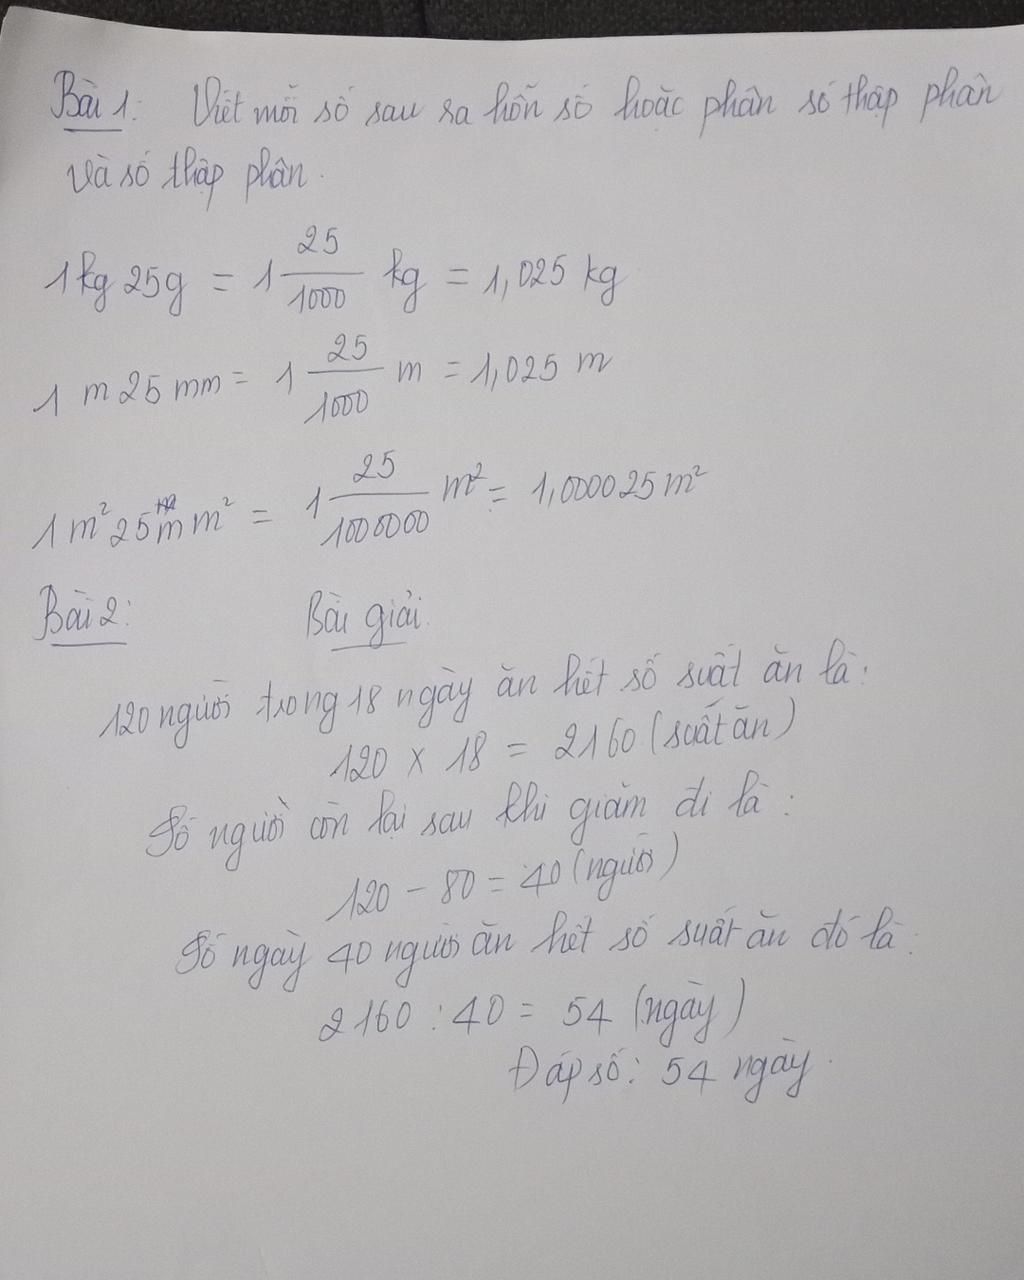 Bài 1: Viết mỗi số sau ra hỗn số hoặc phân số thập phân
và số thập phân.
1kg 25g = 1 25/1000 kg = 1,025 kg
1 m 25 mm = 1 25/1000 m = 1,025 m
1 m² 25 mm² = 1 25/1000000 m² = 1,000025 m²
Bài 2: Bài giải.
120 người trong 18 ngày ăn hết số suất ăn là:
120 x 18 = 2160 (suất ăn)
Số người còn lại sau khi giảm đi là:
120 - 80 = 40 (người)
Số ngày 40 người ăn hết số suất ăn đó là:
2160 : 40 = 54 (ngày)
Đáp số: 54 ngày.